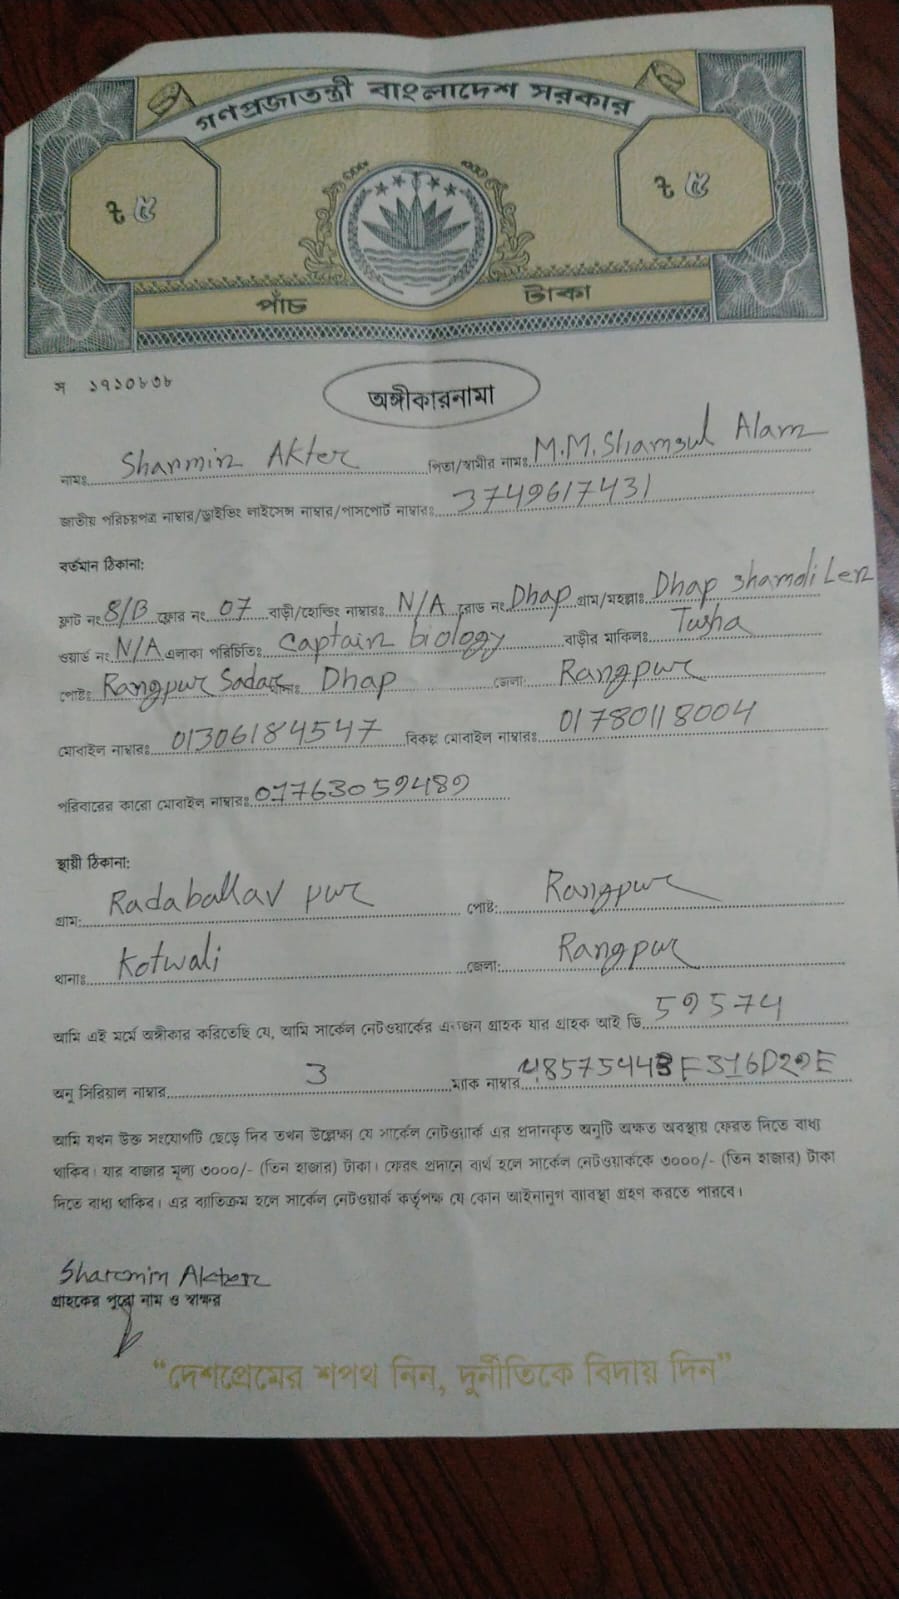 গণপ্রজাতন্ত্রী বাংলাদেশ সরকার
৳ ৫ ৳ ৫
পাঁচ টাকা
স ১৭১০৮৩৮
অঙ্গীকারনামা
নামঃ Sharmin Akter পিতা/স্বামীর নামঃ M.M. Shamsul Alam
জাতীয় পরিচয়পত্র নাম্বার/ড্রাইভিং লাইসেন্স নাম্বার/পাসপোর্ট নাম্বারঃ 3749617431
বর্তমান ঠিকানা:
ফ্লাট নং 8/B ফ্লোর নং 07 বাড়ী/হোল্ডিং নাম্বারঃ N/A রোড নং Dhap গ্রাম/মহল্লাঃ Dhap Shamoli Len
ওয়ার্ড নং N/A এলাকা পরিচিতিঃ Captain biology বাড়ীর মালিকঃ Tusha
পোষ্টঃ Rangpur Sadar থানাঃ Dhap জেলা: Rangpur
মোবাইল নাম্বারঃ 01306184547 বিকল্প মোবাইল নাম্বারঃ 01780118004
পরিবারের কারো মোবাইল নাম্বারঃ 01763059489
স্থায়ী ঠিকানা:
গ্রাম: Radaballav pur পোষ্ট: Rangpur
থানাঃ Kotwali জেলা: Rangpur
আমি এই মর্মে অঙ্গীকার করিতেছি যে, আমি সার্কেল নেটওয়ার্কের একজন গ্রাহক যার গ্রাহক আই ডি 59574
অনু সিরিয়াল নাম্বার 3 ম্যাক নাম্বার
আমি যখন উক্ত সংযোগটি ছেড়ে দিব তখন উল্লেক্ষা যে সার্কেল নেটওয়ার্ক এর প্রদানকৃত অনুটি অক্ষত অবস্থায় ফেরত দিতে বাধ্য
থাকিব। যার বাজার মূল্য ৩০০০/- (তিন হাজার) টাকা। ফেরৎ প্রদানে ব্যর্থ হলে সার্কেল নেটওয়ার্ককে ৩০০০/- (তিন হাজার) টাকা
দিতে বাধ্য থাকিব। এর ব্যতিক্রম হলে সার্কেল নেটওয়ার্ক কর্তৃপক্ষ যে কোন আইনানুগ ব্যাবস্থা গ্রহণ করতে পারবে।
Sharmin Akter
গ্রাহকের পুরো নাম ও স্বাক্ষর
“দেশপ্রেমের শপথ নিন, দুর্নীতিকে বিদায় দিন”